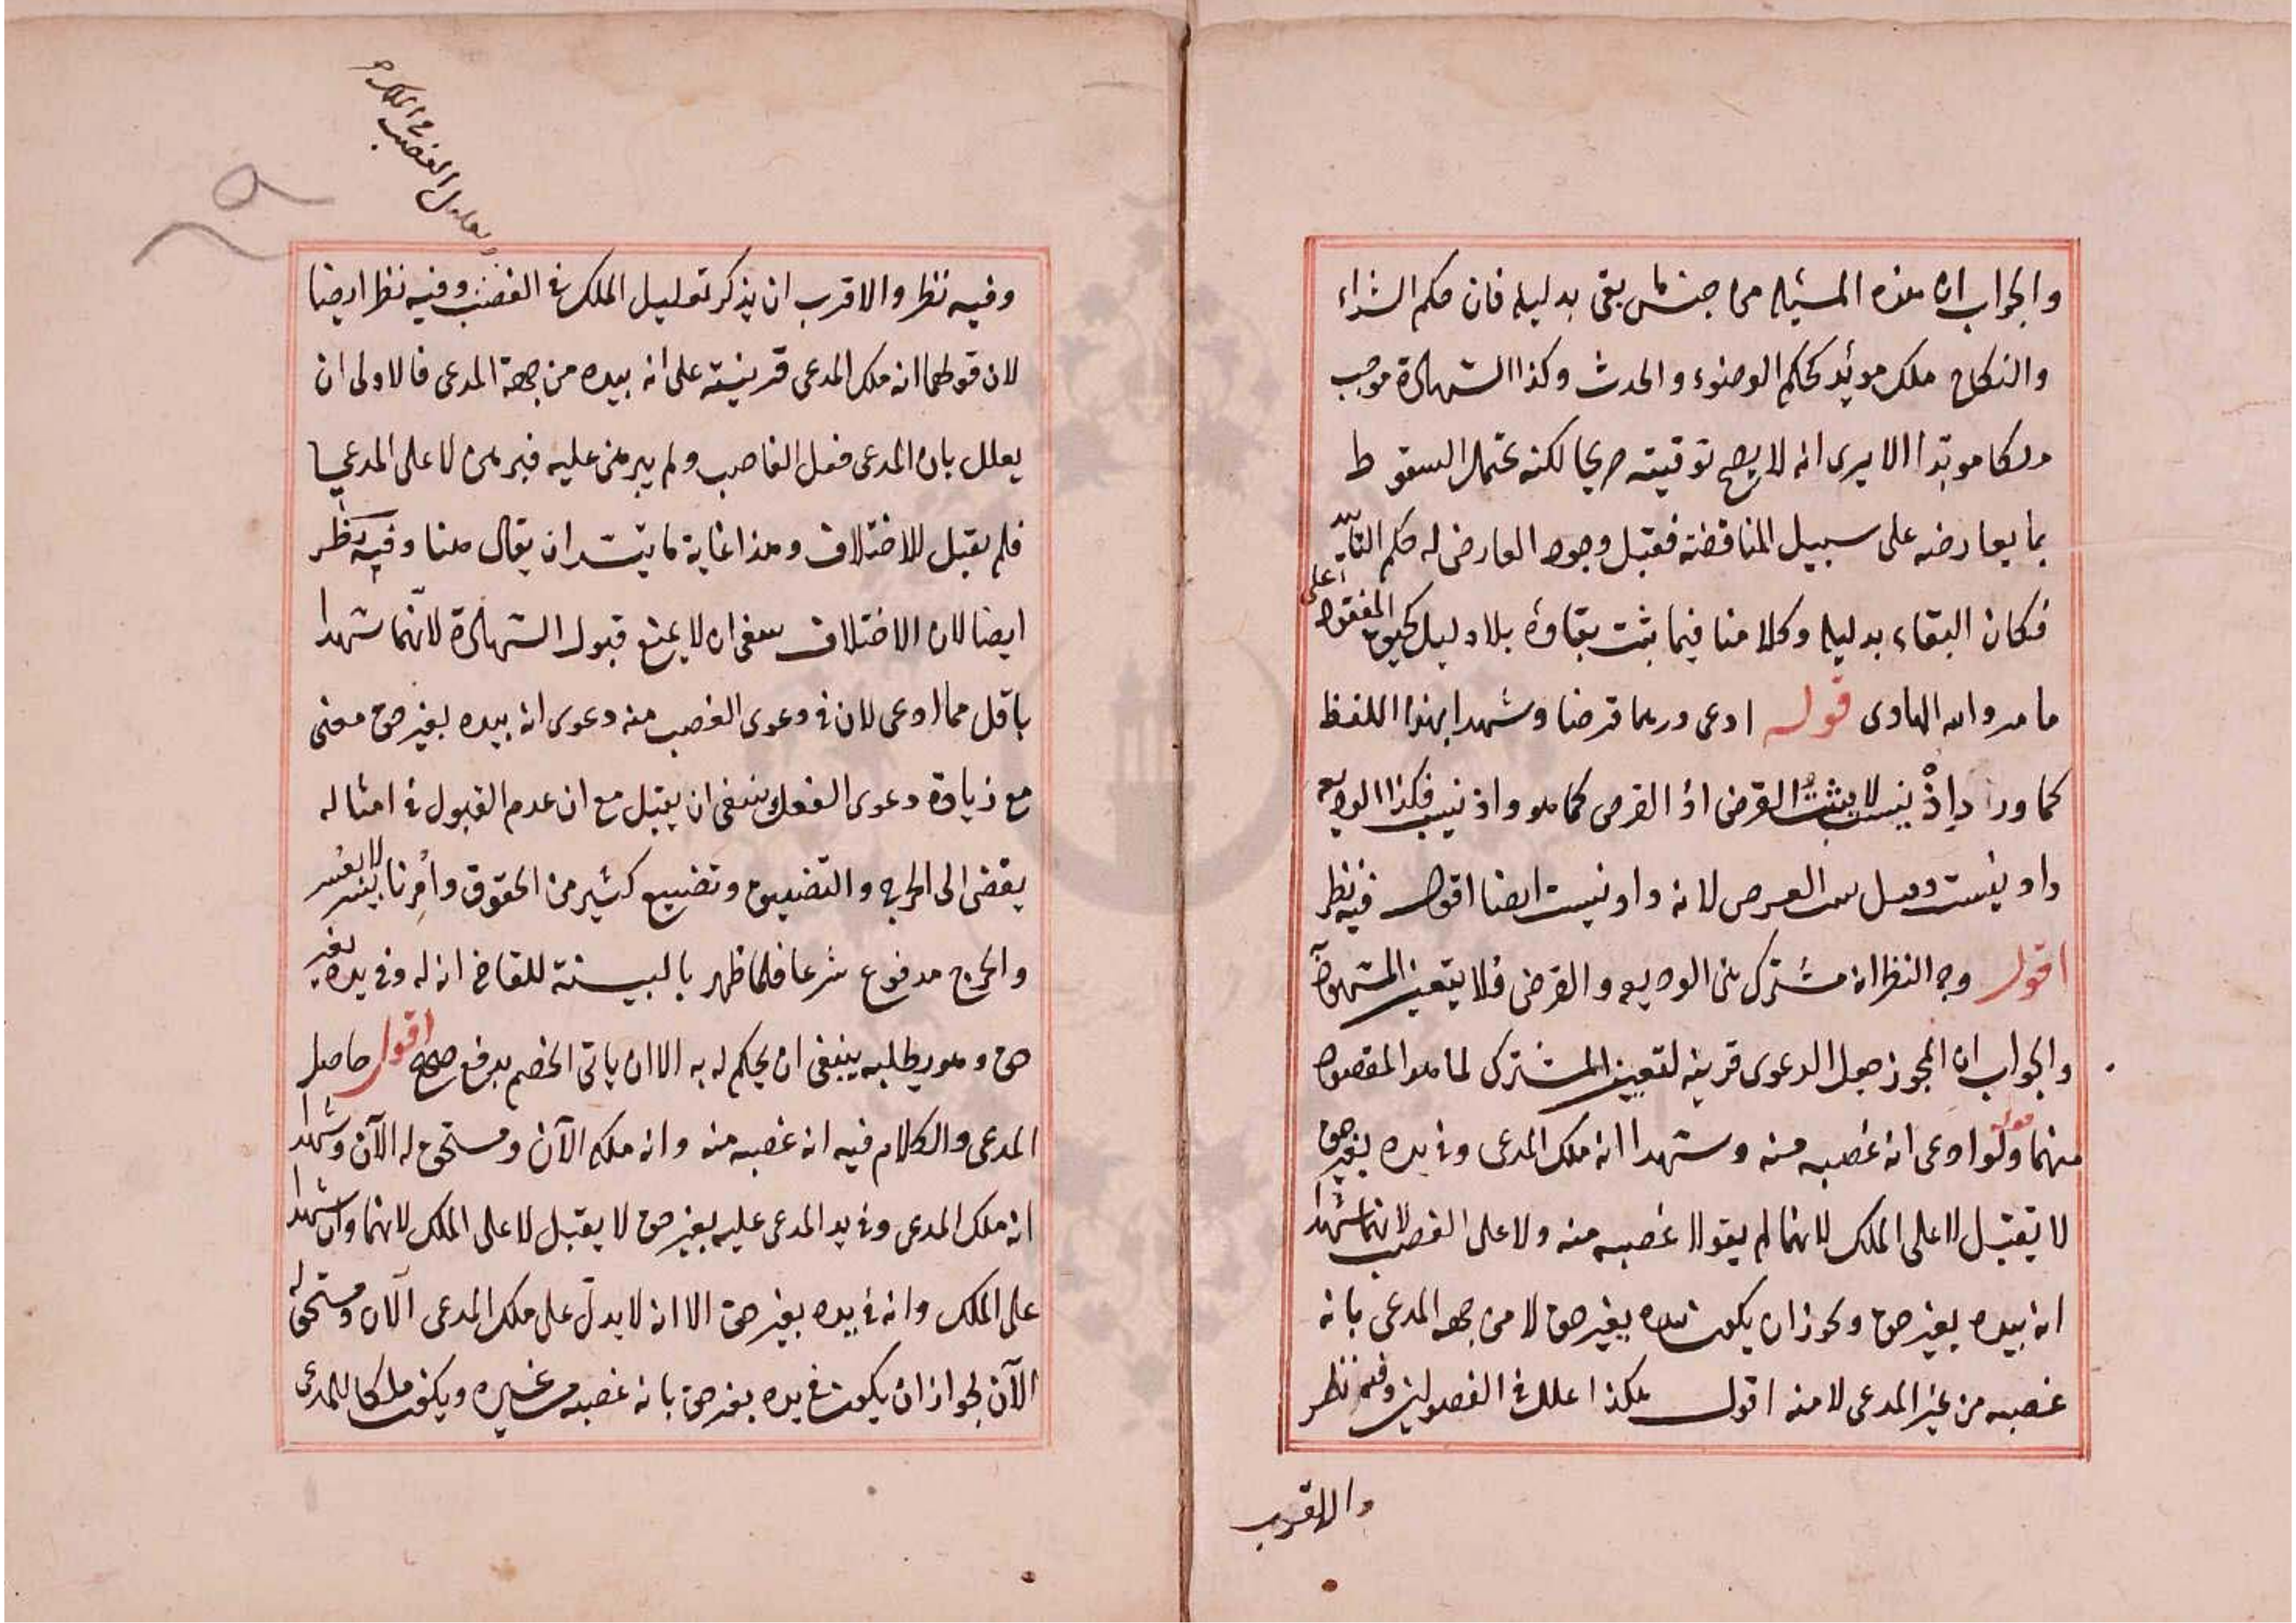 والجواب ان هذه المسئله من جنس ما بقى بدليله فان حكم الشراء
والنكاح ملك موبد كحكم الوضوء والحدث وكذا الشهادة موجب
ملكا موبدا الا يرى انه لا يصح توقيته صريحا لكنه يحتمل السقوط
بما يعارضه على سبيل المناقضة فقبل وجود المعارض له حكم التابيد
فكان البقاء بدليله وكلامنا فيما يثبت بقاوه بلا دليل كحيوة المفقود على
ما مر والله الهادى قوله ادعى درهما قرضا وشهدا بهذا اللفظ
كما ورا
لانه داونيست ايضا اقول فيه نظر
اقول وجه النظر انه مشترك بين الوديعه والقرض فلا يتعين المشهود
والجواب ان المجوز جعل الدعوى قرينه لتعيين المشترك لما هو المقصود
منهما قوله ولو ادعى انه غصبه منه وشهدا انه ملك المدعى وفى يده بغير حق
لا يقبل لا على الملك لانهما لم يقولا غصبه منه ولا على الغصب لانهما شهدا
انه بيده بغير حق ويجوز ان يكون بيده بغير حق لا من جهه المدعى بانه
غصبه من غير المدعى لا منه اقول هكذا علل فى الفصولين وفيه نظر
والاقرب
ويعلل الغصب فى الملك
وفيه نظر والاقرب ان يذكر تعليل الملك فى الغصب وفيه نظر ايضا
لان قولهما انه ملك المدعى قرينته على انه بيده من جهة المدعى فالاولى ان
يعلل بان المدعى فعل الغاصب ولم يبرهن عليه فبرهن لا على المدعى
فلم يقبل للاختلاف وهذا غاية ما يتيسر ان يقال هنا وفيه نظر
ايضا لان الاختلاف ينبغى ان لا يمنع قبول الشهادة لانهما شهدا
باقل مما ادعى لان فى دعوى الغصب منه دعوى انه بيده بغير حق معنى
مع زيادة دعوى الفعل ينبغى ان يقبل مع ان عدم القبول فى امثاله
يفضى الى الحرج والتضييق وتضييع كثير من الحقوق وأمرنا بيسر لا بعسر
والحرج مدفوع شرعا فلما ظهر بالبينة للقاضى انه له وفى يده بغير
حق وهو يطلبه ينبغى ان يحكم له به الا ان ياتى الخصم بدفع صحيح اقول حاصل
المدعى والكلام فيه انه غصبه منه وانه ملكه الآن ومستحق له الآن وشهدا
انه ملك المدعى وفى يد المدعى عليه بغير حق لا يقبل لا على الملك لانهما وان شهدا
على الملك وانه فى يده بغير حق الا انه لا يدل على ملك المدعى الآن ومستحق له
الآن لجواز ان يكون فى يده بغير حق بانه غصبه من غيره ويكون ملكا للمدعى